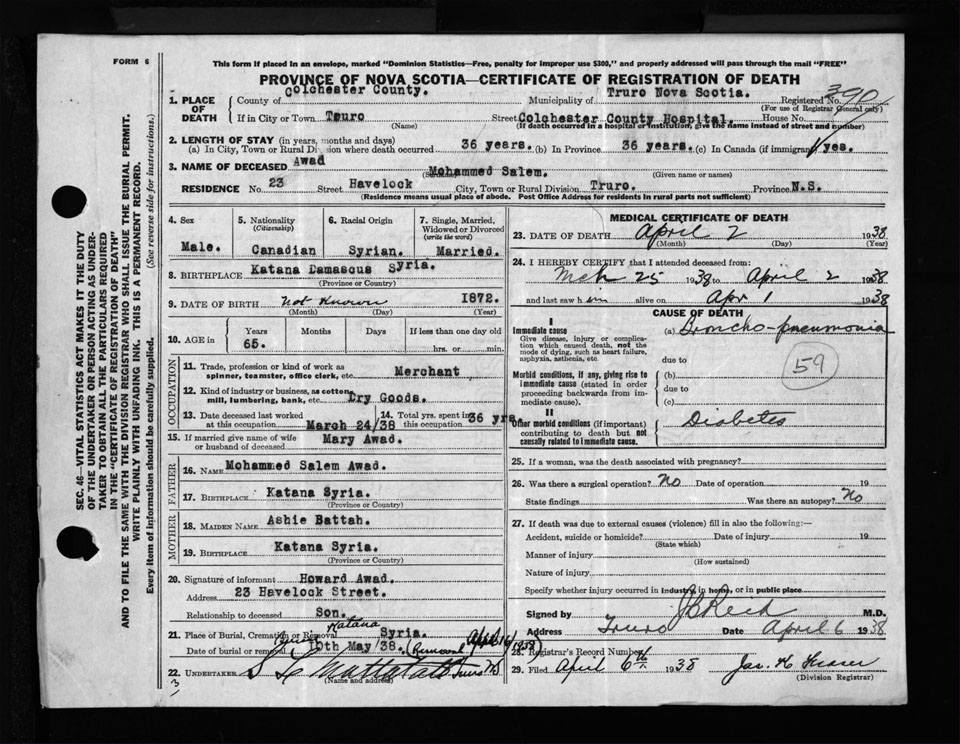 FORM 6
This form if placed in an envelope, marked "Dominion Statistics—Free, penalty for improper use $300," and properly addressed will pass through the mail "FREE"
PROVINCE OF NOVA SCOTIA—CERTIFICATE OF REGISTRATION OF DEATH
1. PLACE OF DEATH
County of Colchester County. Municipality of Truro Nova Scotia. Registered No. 390
(For use of Registrar General only)
If in City or Town Truro Street Colchester County Hospital. House No.
(Name) (If death occurred in a hospital or institution, give the name instead of street and number)
2. LENGTH OF STAY (in years, months and days)
(a) In City, Town or Rural Division where death occurred 36 years. (b) In Province 36 years. (c) In Canada (if immigrant) yes.
3. NAME OF DECEASED Awad Mohammed Salem.
(Surname) (Given name or names)
RESIDENCE No. 23 Street Havelock City, Town or Rural Division Truro. Province N.S.
(Residence means usual place of abode. Post Office Address for residents in rural parts not sufficient)
4. Sex
Male.
5. Nationality
(Citizenship)
Canadian
6. Racial Origin
Syrian.
7. Single, Married, Widowed or Divorced
(write the word)
Married.
8. BIRTHPLACE Katana Damascus Syria.
(Province or Country)
9. DATE OF BIRTH Not Known 1872.
(Month) (Day) (Year)
10. AGE in
Years Months Days If less than one day old
65. hrs. or min.
OCCUPATION
11. Trade, profession or kind of work as spinner, teamster, office clerk, etc. Merchant
12. Kind of industry or business, as cotton mill, lumbering, bank, etc. Dry Goods.
13. Date deceased last worked at this occupation March 24/38
14. Total yrs. spent in this occupation 36 yrs.
15. If married give name of wife or husband of deceased Mary Awad.
FATHER
16. NAME Mohammed Salem Awad.
17. BIRTHPLACE Katana Syria.
(Province or Country)
MOTHER
18. MAIDEN NAME Ashie Battah.
19. BIRTHPLACE Katana Syria.
(Province or Country)
20. Signature of informant Howard Awad.
Address 23 Havelock Street.
Relationship to deceased Son.
21. Place of Burial, Cremation or Removal Katana Syria.
Date of burial or removal 10th May/38. (Removal April 16/1938)
22. UNDERTAKER
(Name and address)
MEDICAL CERTIFICATE OF DEATH
23. DATE OF DEATH April 2 1938
(Month) (Day) (Year)
24. I HEREBY CERTIFY that I attended deceased from:
Mch 25 1938 to April 2 1938
and last saw him alive on Apr 1 1938
CAUSE OF DEATH
I
Immediate cause (a) Broncho-pneumonia
Give disease, injury or complication which caused death, not the mode of dying, such as heart failure, asphyxia, asthenia, etc.
due to
59
Morbid conditions, if any, giving rise to immediate cause (stated in order proceeding backwards from immediate cause).
(b)
due to
(c)
II
Other morbid conditions (if important) contributing to death but not causally related to immediate cause.
Diabetes
25. If a woman, was the death associated with pregnancy?
26. Was there a surgical operation? No Date of operation 19
State findings Was there an autopsy? No
27. If death was due to external causes (violence) fill in also the following:—
Accident, suicide or homicide? Date of injury 19
(State which)
Manner of injury
(How sustained)
Nature of injury
Specify whether injury occurred in industry, in home, or in public place
Signed by M.D.
Address Truro Date April 6 1938
28. Registrar's Record Number
29. Filed April 6th 1938
(Division Registrar)
SEC. 46—VITAL STATISTICS ACT MAKES IT THE DUTY OF THE UNDERTAKER OR PERSON ACTING AS UNDERTAKER TO OBTAIN ALL THE PARTICULARS REQUIRED IN THE "CERTIFICATE OF REGISTRATION OF DEATH" AND TO FILE THE SAME WITH THE DIVISION REGISTRAR WHO SHALL ISSUE THE BURIAL PERMIT.
WRITE PLAINLY WITH UNFADING INK. THIS IS A PERMANENT RECORD.
Every item of information should be carefully supplied. (See reverse side for instructions.)